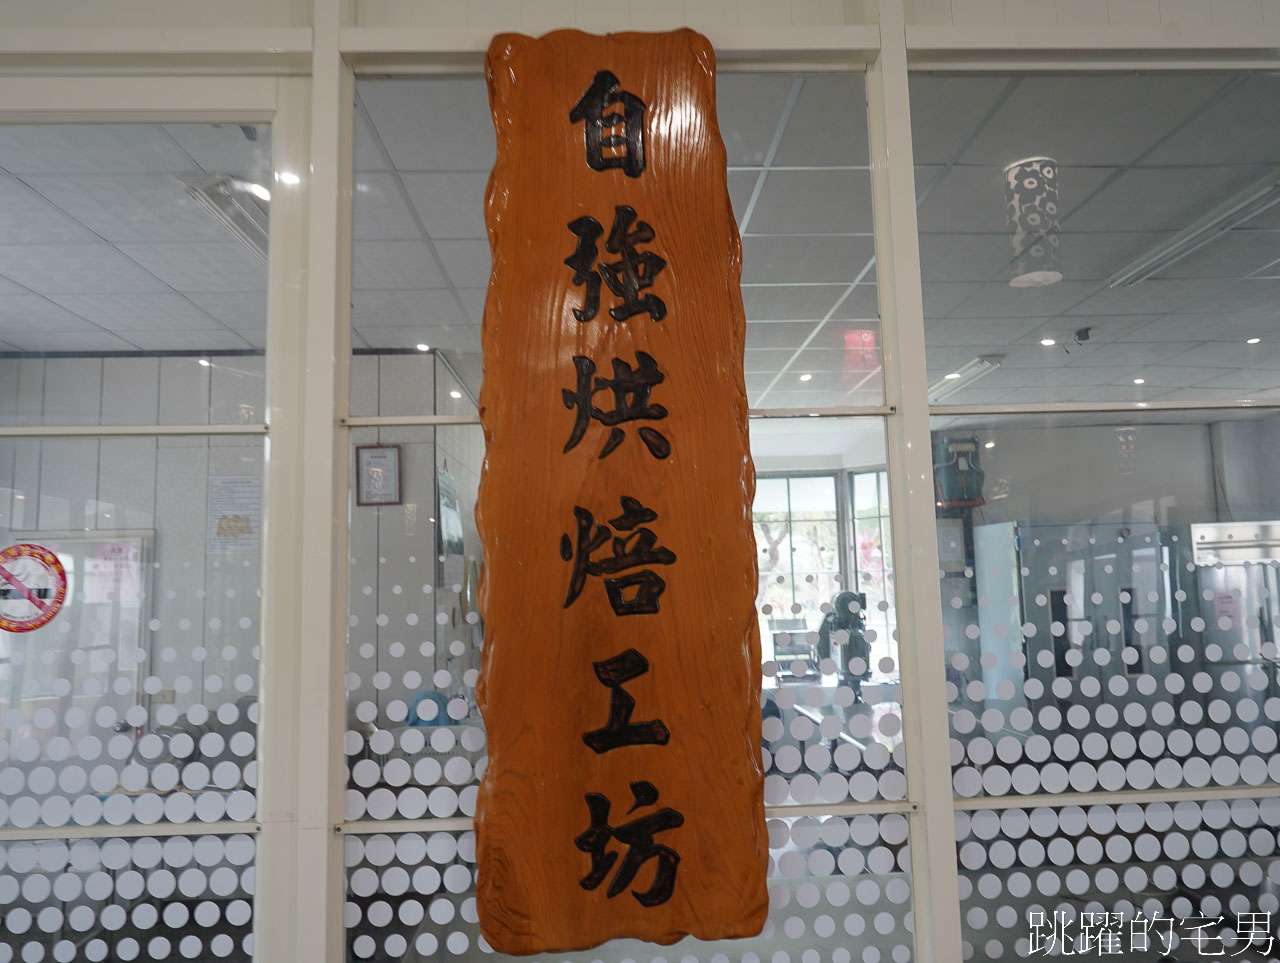 自強烘焙工坊
跳躍的宅男